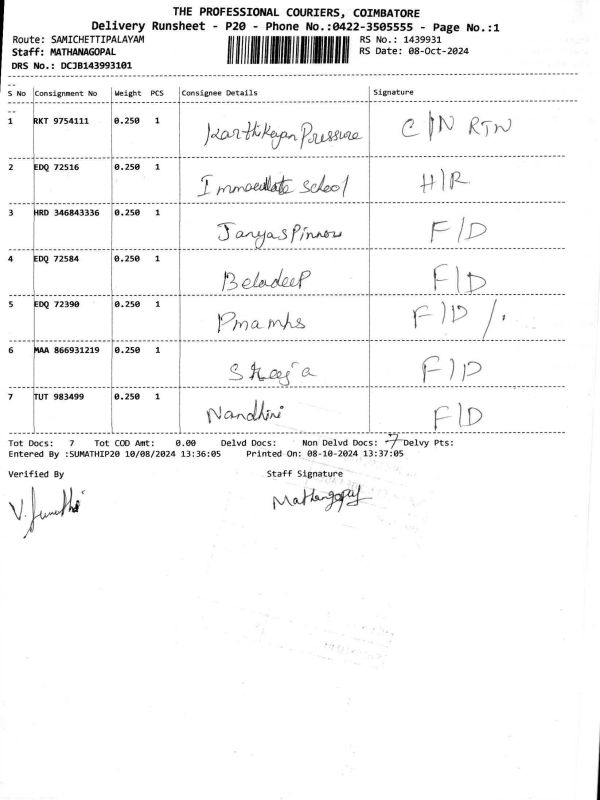 THE PROFESSIONAL COURIERS, COIMBATORE
Delivery Runsheet - P20 - Phone No.:0422-3505555 - Page No.:1
Route: SAMICHETTIPALAYAM RS No.: 1439931
Staff: MATHANAGOPAL RS Date: 08-Oct-2024
DRS No.: DCJB143993101
S No Consignment No Weight PCS Consignee Details Signature
1 RKT 9754111 0.250 1 Karthikeyan Pressure C/N RTN
2 EDQ 72516 0.250 1 Immaculate School H/R
3 HRD 346843336 0.250 1 F/D
4 EDQ 72584 0.250 1 Beladeep F/D
5 EDQ 72390 0.250 1 Pmamhs F/D /.
6 MAA 866931219 0.250 1 F/D
7 TUT 983499 0.250 1 Nandhini F/D
Tot Docs: 7 Tot COD Amt: 0.00 Delvd Docs: Non Delvd Docs: 7 Delvy Pts:
Entered By :SUMATHIP20 10/08/2024 13:36:05 Printed On: 08-10-2024 13:37:05
Verified By Staff Signature
V. Sumathi Mathangopal